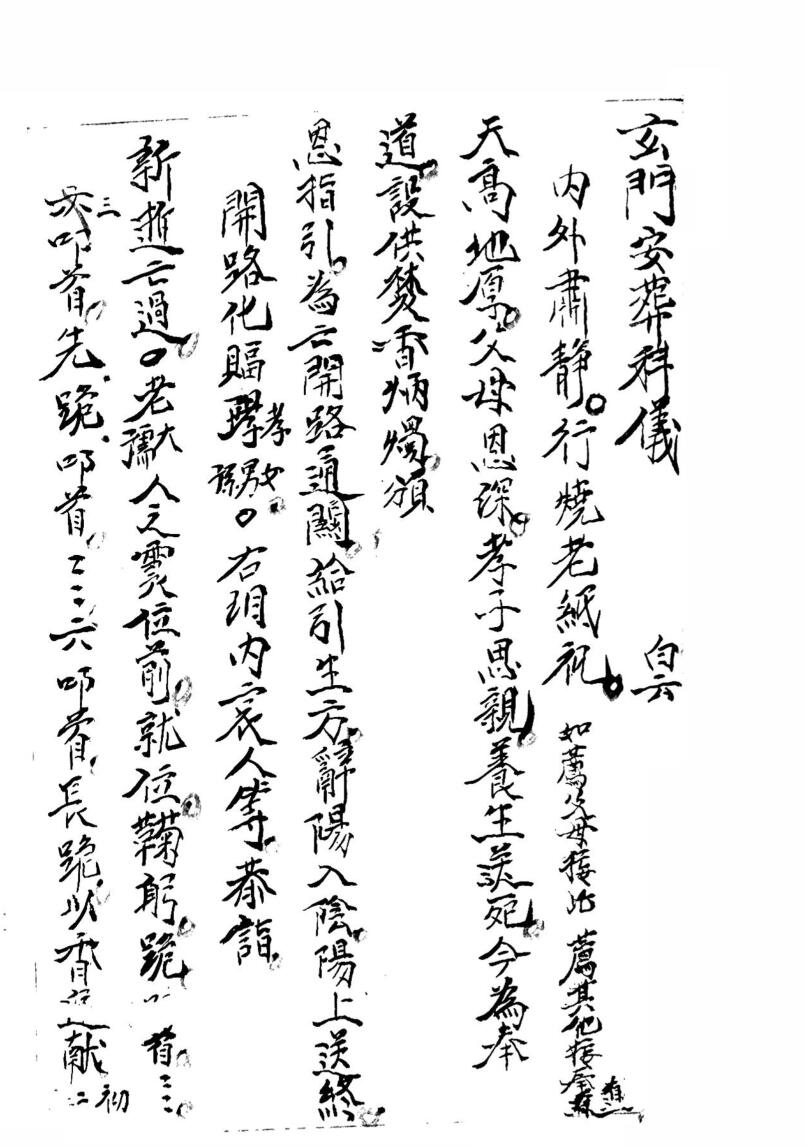 玄門安葬科儀 白云
内外肅靜。行燒老紙祝。如薦父母接此 薦其他接後
天高地厚。父母恩深。孝子思親。養生送死。今為奉
道設供焚香炳燭。頒
恩指引。為亡開路通關。給引生方。辭陽入陰。陽上送終。
開路化賜孝男女。右䏦内哀人等。恭詣
新逝亡過。老大孺人之霛位前。就位。鞠躬。跪。叩首。二三。
三次叩首。先跪。叩首。二三六叩首。長跪。以香初二献